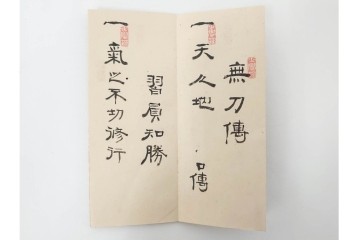 無刀傳
一天人地 口傳
習負知勝
一氣之不切修行